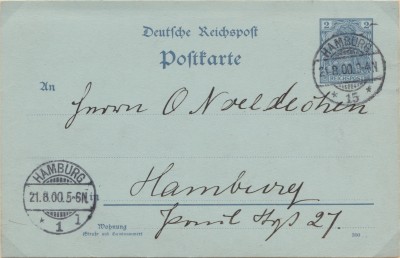 Deutsche Reichspost
Postkarte
2
2
HAMBURG
21.8.00.1-4N
* 15 *
An
Herrn O
HAMBURG
21.8.00.5-6N
* 1 1
in
Hamburg
27.
Wohnung
(Straße und Hausnummer)